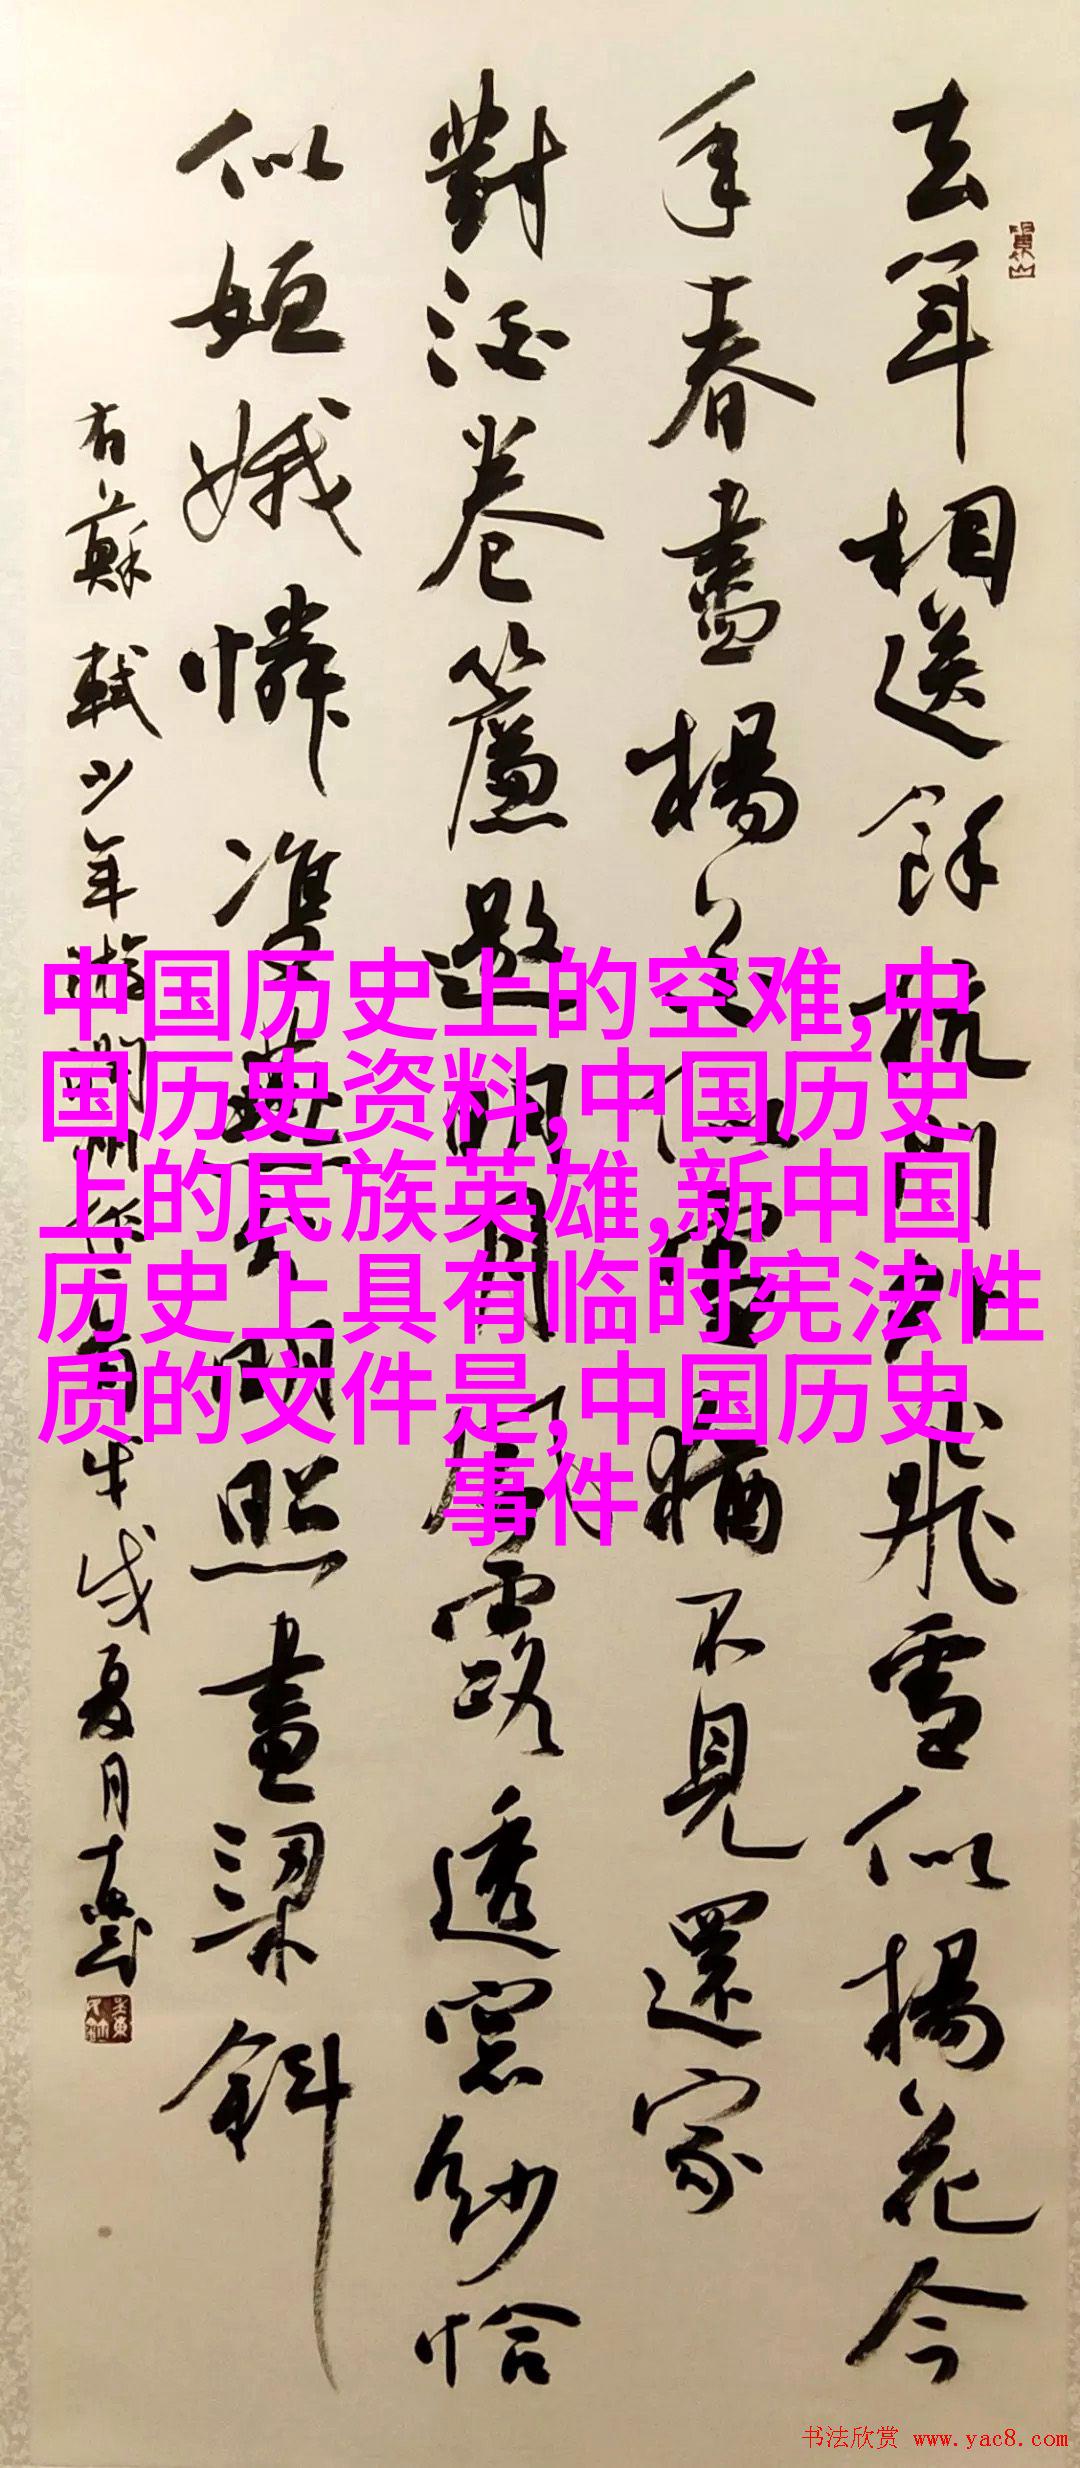 去年相送餘杭門外飛雪似楊花今
年春盡楊花似雪猶不見還家
對酒卷簾邀明月風露透窓紗恰
似姮娥憐雙燕分明照畫梁斜
右蘇軾少年游潤州作 夏月
中国历史上的空难,中
国历史资料,中国历史
上的民族英雄,新中国
历史上具有临时宪法性
质的文件是,中国历史
事件
书法欣赏 www.yac8.com